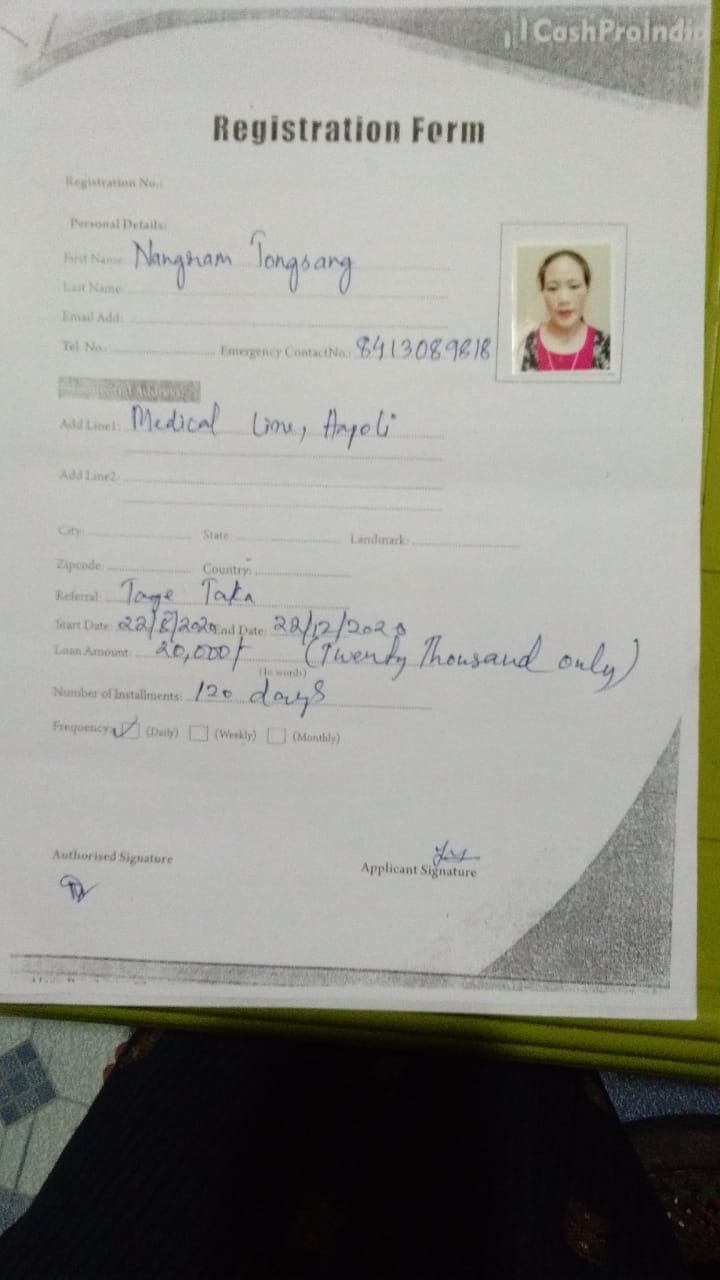 CashProIndia
Registration Form
Registration No.:
Personal Details:
First Name: Nangnam Tongsang
Last Name:
Email Add:
Tel. No.: Emergency ContactNo.: 8413089818
Address
Add Line1: Medical Line, Hapoli
Add Line2:
City: State: Landmark:
Zipcode: Country:
Referral: Tage Taka
Start Date: 22/8/2020 End Date: 22/12/2020
Loan Amount: 20,000/- (Twenty Thousand only)
(In words)
Number of Installments: 120 days
Frequency: (Daily) (Weekly) (Monthly)
Authorised Signature
Applicant Signature